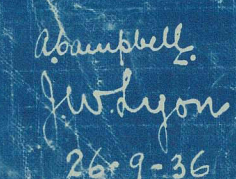 A. Campbell.
J W Lyon
26-9-36